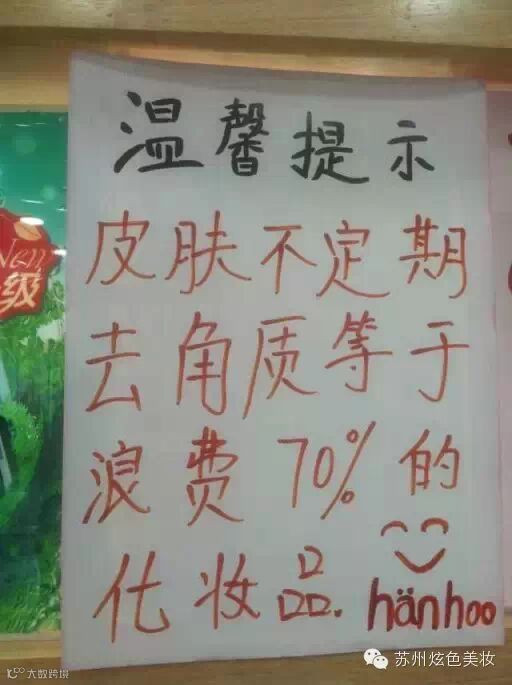 温馨提示
皮肤不定期
去角质等于
浪费70%的
化妆品.
hānhoo
级
苏州炫色美妆
大数跨境